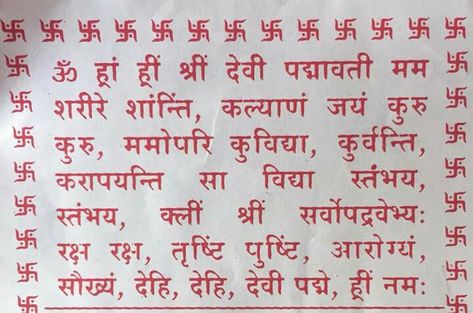 ॐ ह्रां ह्रीं श्रीं देवी पद्मावती मम
शरीरे शांन्तिं, कल्याणं जयं कुरु
कुरु, ममोपरि कुविद्या, कुर्वन्ति,
करापयन्ति सा विद्या स्तंभय,
स्तंभय, क्लीं श्रीं सर्वोपद्रवेभ्यः
रक्ष रक्ष, तृष्टिं पुष्टिं, आरोग्यं,
सौख्यं, देहि, देहि, देवी पद्मे, ह्रीं नमः